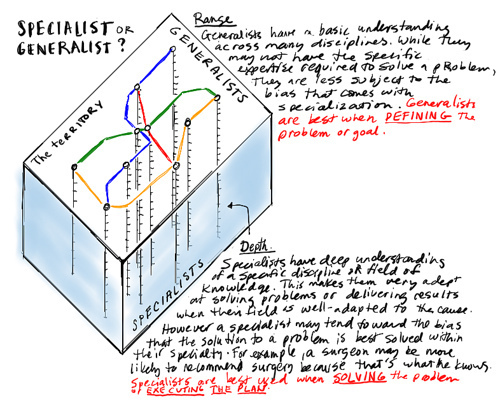 SPECIALIST OR
GENERALIST?
The Territory
GENERALISTS
SPECIALISTS
Range
Generalists have a basic understanding
across many disciplines. While they
may not have the specific
expertise required to solve a problem,
They are less subject to the
bias that comes with
specialization. Generalists
are best when DEFINING The
problem or goal.
Depth
Specialists have deep understanding
of a specific discipline or field of
knowledge. This makes them very adept
at solving problems or delivering results
when their field is well-adapted to the cause.
However a specialist may tend toward the bias
that the solution to a problem is best solved within
their specialty. For example, a surgeon may be more
likely to recommend surgery because that's what he knows.
Specialists are best used when SOLVING the problem
or EXECUTING THE PLAN.